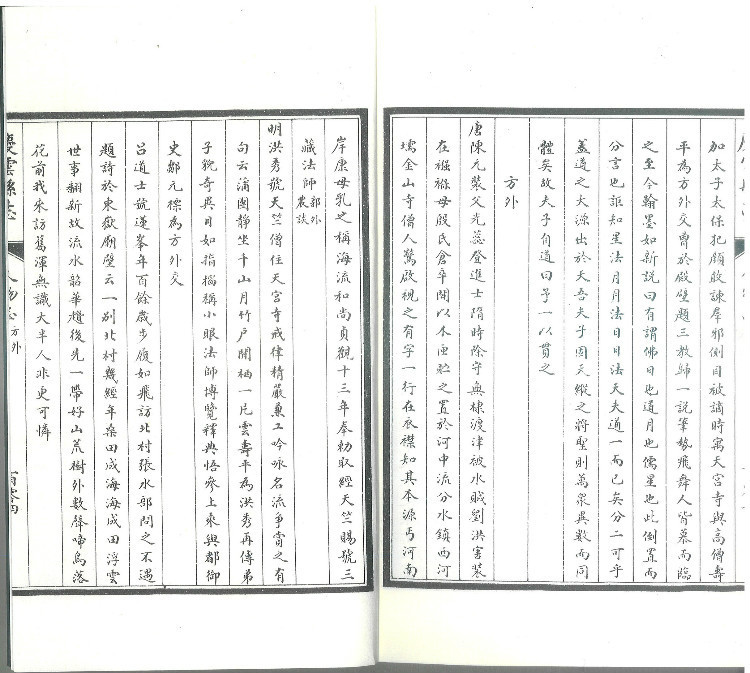 加太子太保犯顏敢諫羣邪側目被謫時寓天宮寺與高僧壽
平為方外交曾於殿壁題三教歸一說筆勢飛舞人皆慕而臨
之至今翰墨如新說曰有謂佛日也道月也儒星也此倒置而
分言也誰知星法月月法日日法天夫道一而已矣分二可乎
蓋道之大源出於天吾夫子固天縱之將聖則萬象異數而同
體矣故夫子自道曰予一以貫之
方外
唐陳元奘父光蕊登進士隋時除守無棣渡津被水賊劉洪害奘
在襁褓母殷氏倉卒間以木匣貯之置於河中流分水鎮西河
壖金山寺僧人驚啟視之有字一行在衣襟知其本源丐河南
岸康母乳之稱海流和尚貞觀十三年奉勅取經天竺賜號三
藏法師 郡外農談
明洪秀號天竺僧住天宮寺戒律精嚴兼工吟咏名流爭賞之有
句云蒲團靜坐千山月竹戶閒栖一片雲壽平為洪秀再傳弟
子貌奇異目如指搐稱小眼法師博覽釋典悟參上乘與都御
史鄒元標為方外交
呂道士號蓮峯年百餘歲步履如飛訪北村張水部問之不遇
題詩於東嶽廟壁云一別北村幾經年桑田成海海成田浮雲
世事翻新故流水韶華趲後先一帶好山荒樹外數聲啼鳥落
花前我來訪舊渾無識大半人非更可憐
慶雲縣志
人物志 方外